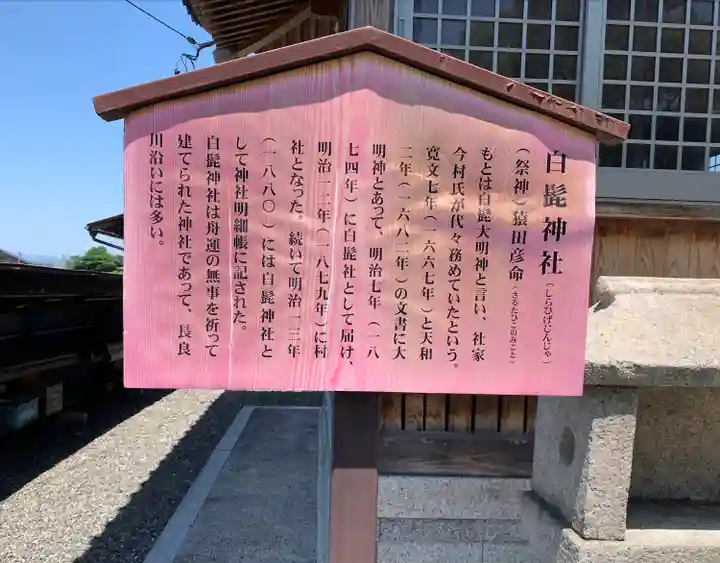 白髭神社(しらひげじんじゃ)
(祭神)猿田彦命(さるたひこのみこと)
もとは白髭大明神と言い、社家
今村氏が代々務めていたという。
寛文七年(一六六七年)と天和
二年(一六八二年)の文書に大
明神とあって、明治七年(一八
七四年)に白髭社として届け、
明治一二年(一八七九年)に村
社となった。続いて明治一三年
(一八八〇)には白髭神社と
して神社明細帳に記された。
白髭神社は舟運の無事を祈って
建てられた神社であって、長良
川沿いには多い。